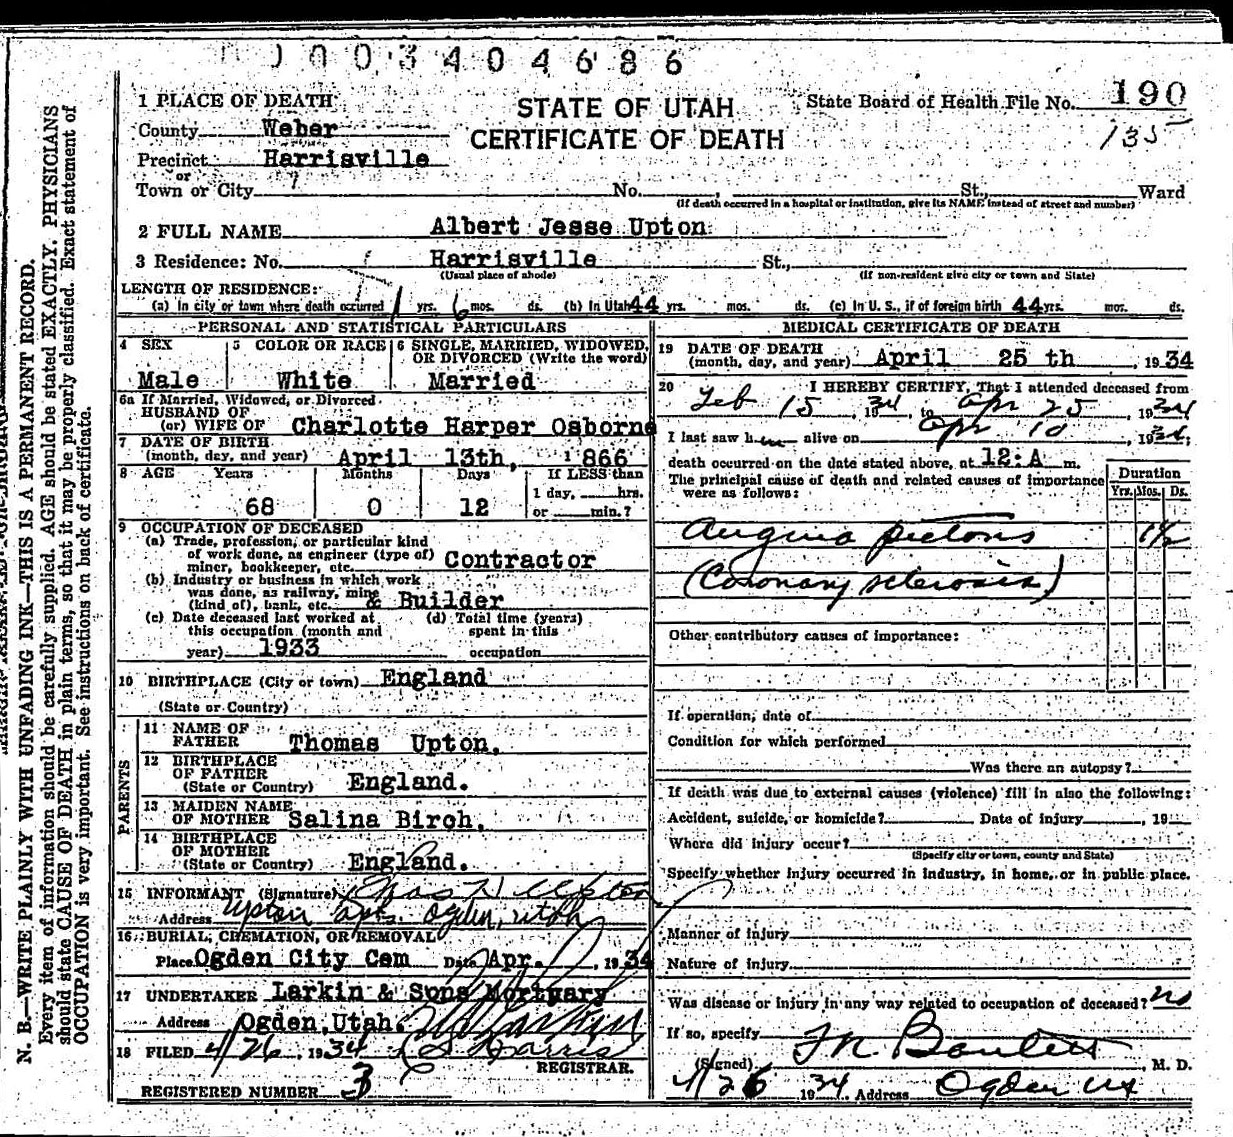 0003404686
1 PLACE OF DEATH
STATE OF UTAH
CERTIFICATE OF DEATH
State Board of Health File No. 190
135
County Weber
Precinct Harrisville
or
Town or City No. , St., Ward
(If death occurred in a hospital or institution, give its NAME instead of street and number)
2 FULL NAME Albert Jesse Upton
3 Residence: No. Harrisville St.,
(Usual place of abode) (If non-resident give city or town and State)
LENGTH OF RESIDENCE:
(a) In city or town where death occurred 1 yrs. 6 mos. ds. (b) In Utah 44 yrs. mos. ds. (c) In U. S., if of foreign birth 44 yrs. mos. ds.
PERSONAL AND STATISTICAL PARTICULARS
4 SEX 5 COLOR OR RACE 6 SINGLE, MARRIED, WIDOWED, OR DIVORCED (Write the word)
Male White Married
6a If Married, Widowed, or Divorced
HUSBAND OF
(or) WIFE OF Charlotte Harper Osborne
7 DATE OF BIRTH
(month, day, and year) April 13th, 1866
8 AGE Years Months Days If LESS than
1 day, hrs.
68 0 12 or min.?
9 OCCUPATION OF DECEASED
(a) Trade, profession, or particular kind
of work done, as engineer (type of)
miner, bookkeeper, etc. Contractor
(b) Industry or business in which work
was done, as railway, mine
(kind of), bank, etc. & Builder
(c) Date deceased last worked at (d) Total time (years)
this occupation (month and spent in this
year) 1933 occupation
10 BIRTHPLACE (City or town) England
(State or Country)
PARENTS
11 NAME OF
FATHER Thomas Upton.
12 BIRTHPLACE
OF FATHER
(State or Country) England.
13 MAIDEN NAME
OF MOTHER Salina Birch.
14 BIRTHPLACE
OF MOTHER
(State or Country) England.
15 INFORMANT (Signature) Chas W Upton
Address Upton Apts. Ogden, Utah
16 BURIAL, CREMATION, OR REMOVAL
Place Ogden City Cem Date Apr. , 1934
17 UNDERTAKER Larkin & Sons Mortuary
Address Ogden, Utah.
18 FILED 4/26, 1934 Harris
REGISTRAR.
REGISTERED NUMBER 3
MEDICAL CERTIFICATE OF DEATH
19 DATE OF DEATH
(month, day, and year) April 25 th , 1934
20 I HEREBY CERTIFY, That I attended deceased from
Feb 15, 1934 to Apr 25, 1934
I last saw him alive on Apr 10, 1934;
death occurred on the date stated above, at 12:A m.
The principal cause of death and related causes of importance
were as follows:
Duration
Yrs. Mos. Ds.
Angina pectoris 1 1/2
(Coronary sclerosis)
Other contributory causes of importance:
If operation, date of
Condition for which performed
Was there an autopsy?
If death was due to external causes (violence) fill in also the following:
Accident, suicide, or homicide? Date of injury , 19
Where did injury occur?
(Specify city or town, county and State)
Specify whether injury occurred in industry, in home, or in public place.
Manner of injury
Nature of injury
Was disease or injury in any way related to occupation of deceased? no
If so, specify
(Signed) M. D.
4/26 1934. Address Ogden Ut
N. B.—WRITE PLAINLY WITH UNFADING INK—THIS IS A PERMANENT RECORD.
Every item of information should be carefully supplied. AGE should be stated EXACTLY. PHYSICIANS
should state CAUSE OF DEATH in plain terms, so that it may be properly classified. Exact statement of
OCCUPATION is very important. See instructions on back of certificate.